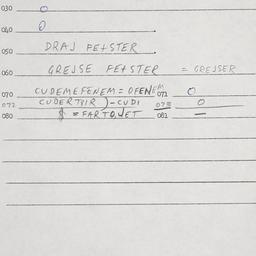 030 0
040 0
050 DRAJ PEҰSTER
060 GREJSE PEҰSTER = GREJSER
070 CUDEMEFENEM = OFENEM 071 0
072 CUDERTRIR ) - CUDI 073 0
080 = FARTOJET 081 —